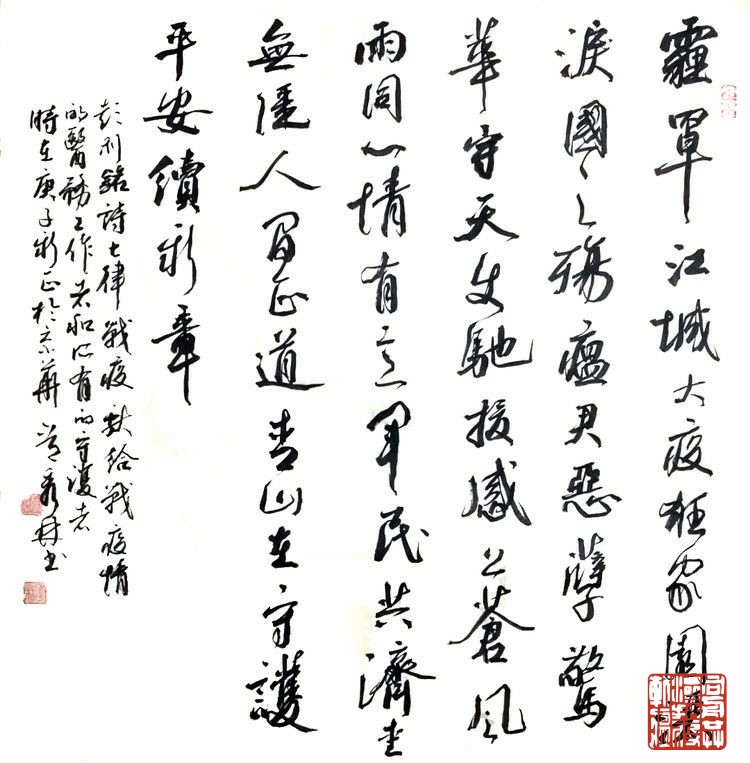 霾罩江城大疫狂家園
淚國之殤瘟君惡孽驚
華宇天使馳援感上蒼風
雨同心情有意軍民共濟愛
無疆人間正道青山在守護
平安續新章
彭利銘詩七律戰疫獻給戰疫情
的醫務工作者和所有的守護者
時在庚子新正於京華書